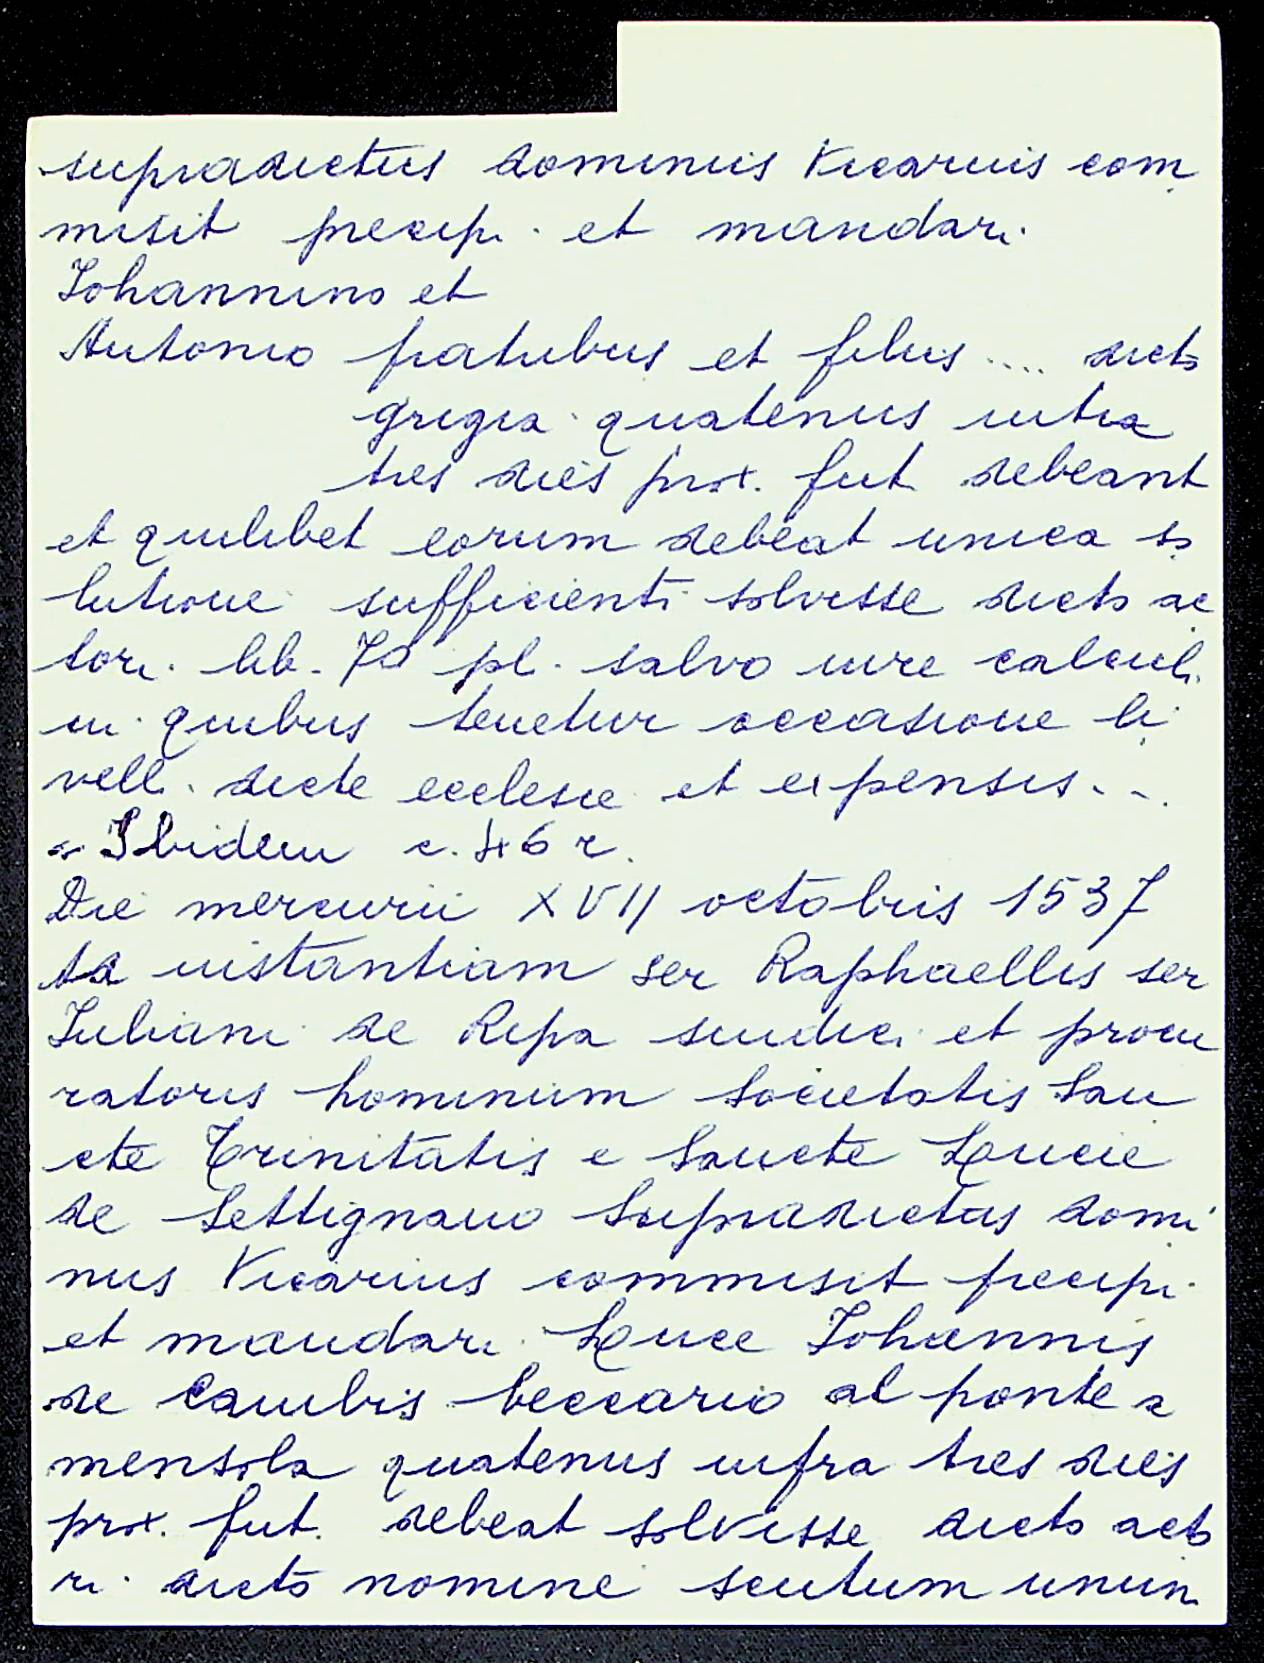 supradictus dominus Vicarius com
misit precipi et mandari
Iohannino et
Antonio fratribus et filiis .... dicto
grigia quatenus intra
tres dies prox. fut. debeant
et quilibet eorum debeat unica so
lutione sufficienti solvisse dicto ac
tori. lib. 70 pl. salvo iure calculi
in quibus tenetur occasione li
velli dicte ecclesie et expensis...
Ibidem c. 46 r.
Die mercurii XVII octobris 1537
instantiam ser Raphaellis ser
Iuliani de Ripa sindici et procu
ratoris hominum Societatis San
cte Trinitatis e Sancte Lucie
de Settignano Supradictus domi
nus Vicarius commisit precipi
et mandari Luce Iohannis
de Cambis beccario al ponte a
mensola quatenus infra tres dies
prox. fut. debeat solvisse dicto acto
ri dicto nomine scutum unum